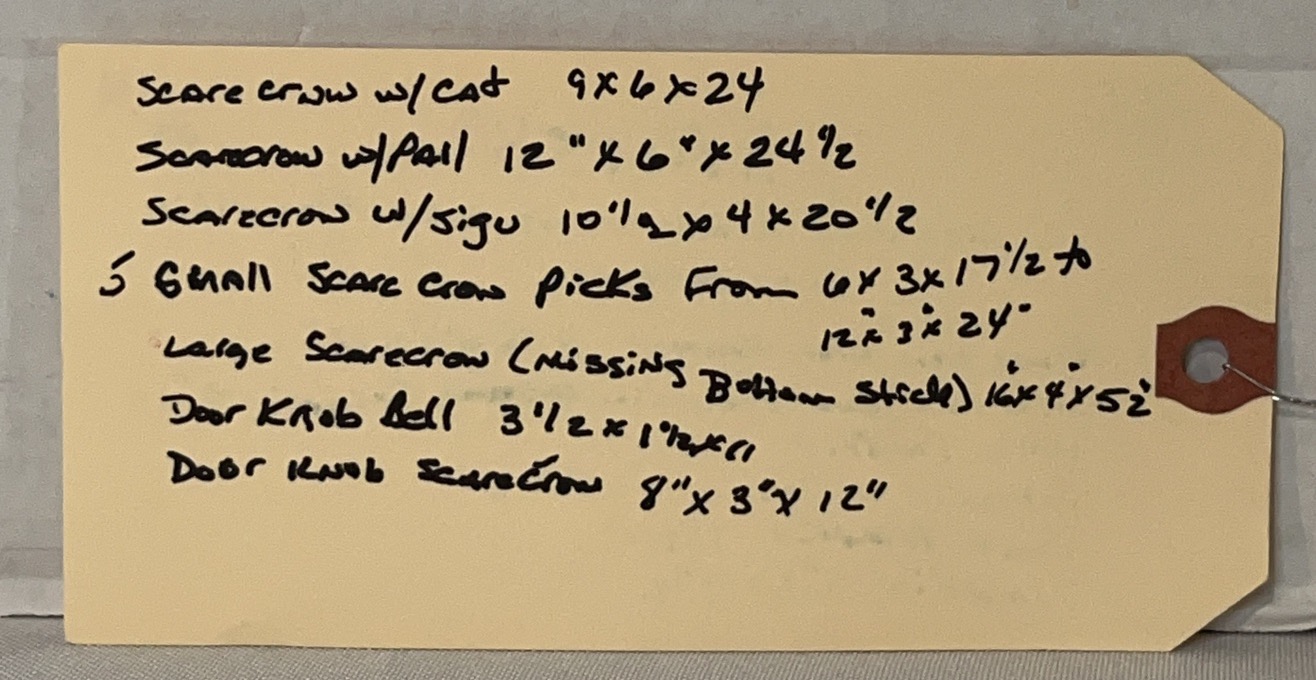 Scarecrow w/cat 9x6x24
Scarecrow w/Pail 12"x6"x24 1/2
Scarecrow w/sign 10 1/2 x 4 x 20 1/2
5 Small Scarecrow Picks From 6x3x17 1/2 to
12"x3"x24"
Large Scarecrow (Missing Bottom Stick) 16"x4"x52"
Door Knob Bell 3 1/2 x 1 1/2 x 11
Door Knob Scarecrow 8"x3"x12"